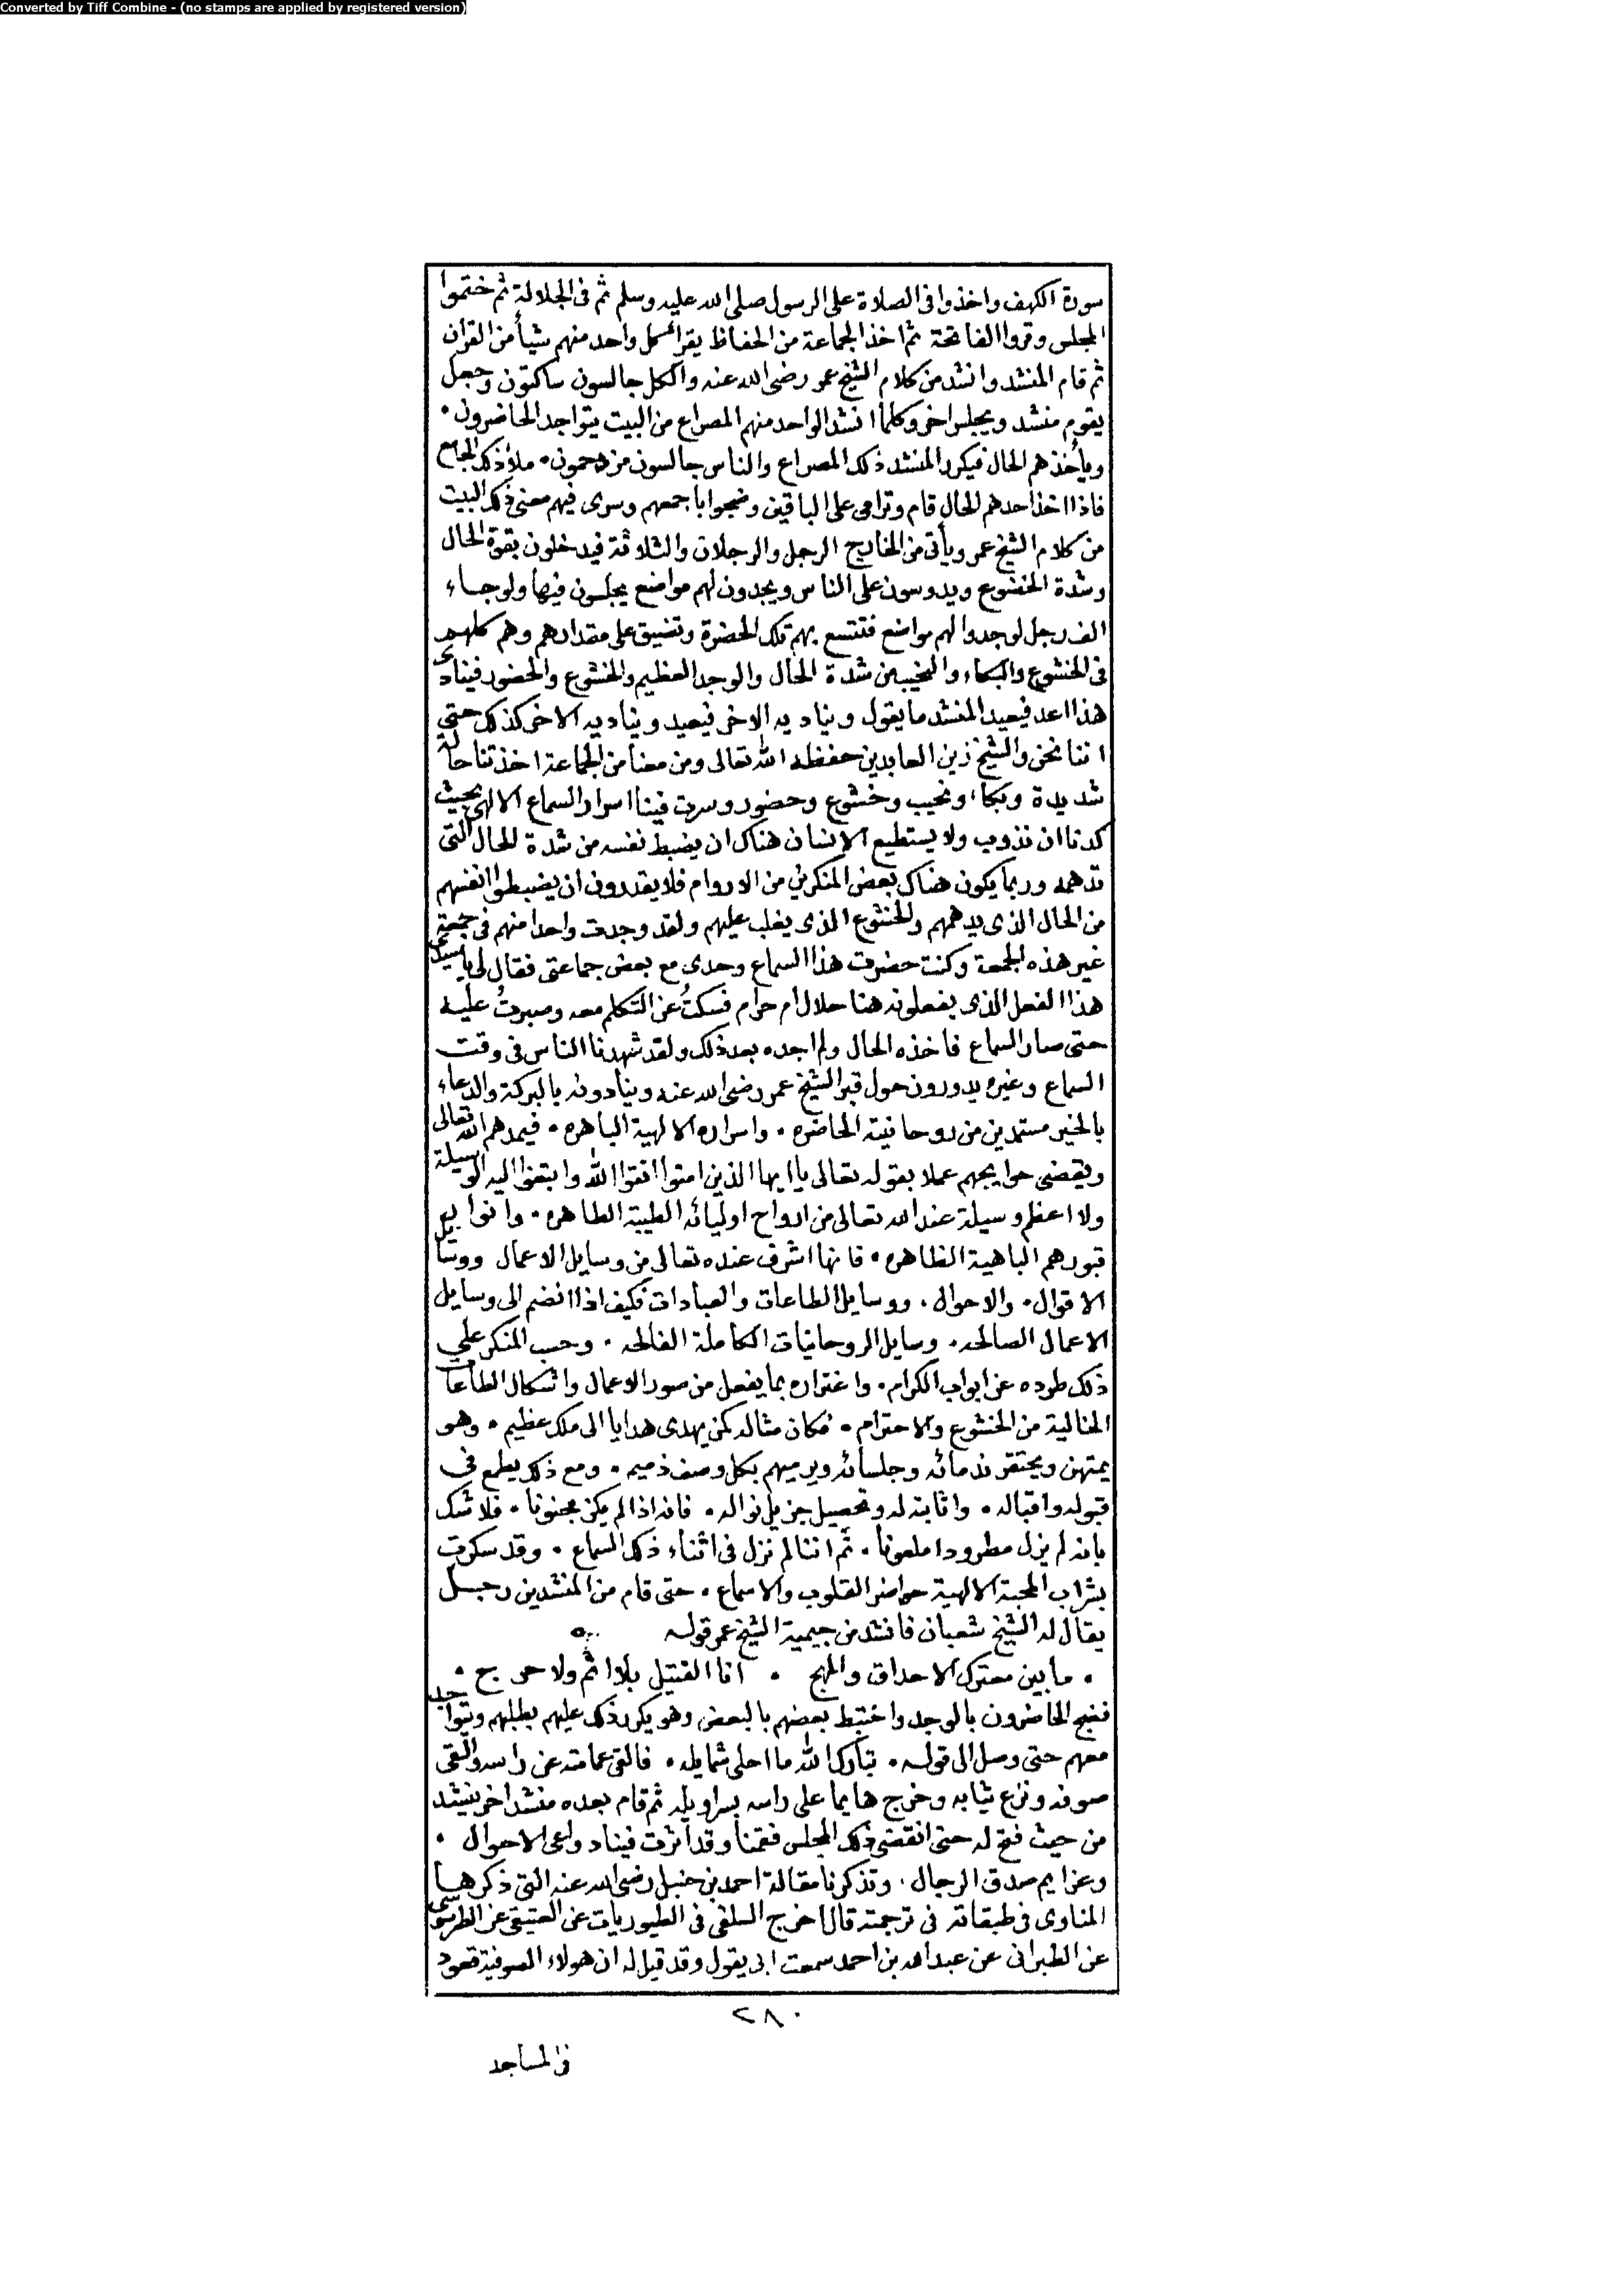 Converted by Tiff Combine - (no stamps are applied by registered version)
سورة الكهف واخذوا فى الصلاة على الرسول صلى الله عليه وسلم ثم فى الجلالة ثم ختموا
المجلس وقروا الفاتحة ثم اخذ الجماعة من الحفاظ يقرأ كل واحد منهم شيأ من القرآن
ثم قام المنشد وانشد من كلام الشيخ عمر رضى الله عنه والكل جالسون ساكتون وجعل
يقوم منشد ويجلس اخر وكلما انشد الواحد منهم المصراع من البيت يتواجد الحاضرون ٠
ويأخذهم الحال فيكرر المنشد ذلك المصراع والناس جالسون مزدحمون ٠ ملأ ذلك الجامع
فاذا اخذ احدهم الحال قام وترامى على الباقين وضجوا باجمعهم وسرى فيهم معنى ذلك البيت
من كلام الشيخ عمر ويأتى من الخارج الرجل والرجلان والثلاثة فيدخلون بقوة الحال
وشدة الخشوع ويدوسون على الناس ويجدون لهم مواضع يجلسون فيها ولو جاء
الف رجل لوجدوا لهم مواضع فتتسع بهم تلك الحضرة وتضيق على مقدارهم وهم كلهم
فى الخشوع والبكاء والنحيب من شدة الحال والوجد العظيم والخشوع والحضور فينادى
هذا اعد فيعيد المنشد ما يقول ويناديه الاخر فيعيد ويناديه الاخر كذلك حتى
اننا نحن والشيخ زين العابدين حفظه الله تعالى ومن معنا من الجماعة اخذتنا حالة
شديدة وبكاء ونحيب وخشوع وحضور وسرت فينا اسرار السماع الالهى بحيث
كدنا ان نذوب ولا يستطيع الانسان هناك ان يضبط نفسه من شدة الحال التى
تدهمه وربما يكون هناك بعض المنكرين من الاروام فلا يقدرون ان يضبطوا انفسهم
من الحال الذى يدهمهم والخشوع الذى يغلب عليهم ولقد وجدت واحدا منهم فى جمعة
غير هذه الجمعة وكنت حضرت هذا السماع وحدى مع بعض جماعتى فقال لى يا سيدى
هذا الفعل الذى يفعلونه هنا حلال ام حرام فسكتُ عن التكلم معه وصبرتُ عليه
حتى صار السماع فاخذه الحال ولم اجده بعد ذلك ولقد شهدنا الناس فى وقت
السماع وغيره يدورون حول قبر الشيخ عمر رضى الله عنه وينادونه بالبركة والدعاء
بالخير مستمدين من روحانيته الحاضره ٠ واسراره الالهية الباهره ٠ فيمدهم الله تعالى
ويقضى حوايجهم عملا بقوله تعالى ياايها الذين امنوا اتقوا الله وابتغوا اليه الوسيلة
ولا اعظم وسيلة عند الله تعالى من ارواح اوليائه الطيبة الطاهره ٠ وانوار
قبورهم الباهية الظاهره ٠ فانها اشرف عنده تعالى من وسايل الاعمال ووسايل
الاقوال ٠ والاحوال ٠ ووسايل الطاعات والعبادات فكيف اذا انضم الى وسايل
الاعمال الصالحه ٠ وسايل الروحانيات الكاملة الفالحه ٠ وحسب المنكر على
ذلك طرده عن ابواب الكرام ٠ واغتراره بما يفعل من صور الاعمال واشكال الطاعات
الخالية من الخشوع والاحترام ٠ فكان مثاله كمن يهدى هدايا الى ملك عظيم ٠ وهو
يمتهن ويحتقر ندمائه وجلسائه ويرميهم بكل وصف ذميم ٠ ومع ذلك يطمع فى
قبوله واقباله ٠ واثابته له وتحصيل جزيل نواله ٠ فانه اذا لم يكن مجنونا ٠ فلا شك
بانه لم يزل مطرودا ملعونا ٠ ثم اننا لم نزل فى اثناء ذلك السماع ٠ وقد سكرت
بشراب المحبة الالهية حواضر القلوب والاسماع ٠ حتى قام من المنشدين رجل
يقال له الشيخ شعبان فانشد من جيمية الشيخ عمر قوله
٠ ما بين معترك الاحداق والمهج ٠ انا القتيل بلا اثم ولا حرج ٠
فضج الحاضرون بالوجد واختبط بعضهم بالبعض وهو يكرر ذلك عليهم بطلبهم ويتواجد
معهم حتى وصل الى قوله ٠ تبارك الله ما احلى شمايله ٠ فالقى عمامته عن راسه والقى
صوفه ونزع ثيابه وخرج هايما على راسه بسراويله ثم قام بعده منشد اخر ينشد
من حيث فتح له حتى انقضى ذلك المجلس فقمنا وقد اثرت فينا دواعى الاحوال ٠
وعزايم صدق الرجال ٠ وتذكرنا مقالة احمد بن حنبل رضى الله عنه التى ذكرها
المناوى فى طبقاته فى ترجمته قال اخرج السلفى فى الطيوريات عن العتيقى عن الطرسوسى
عن الطبرانى عن عبد الله بن احمد سمعت ابى يقول وقد قيل له ان هولاء الصوفية قعود
٢٨٠
فى المساجد